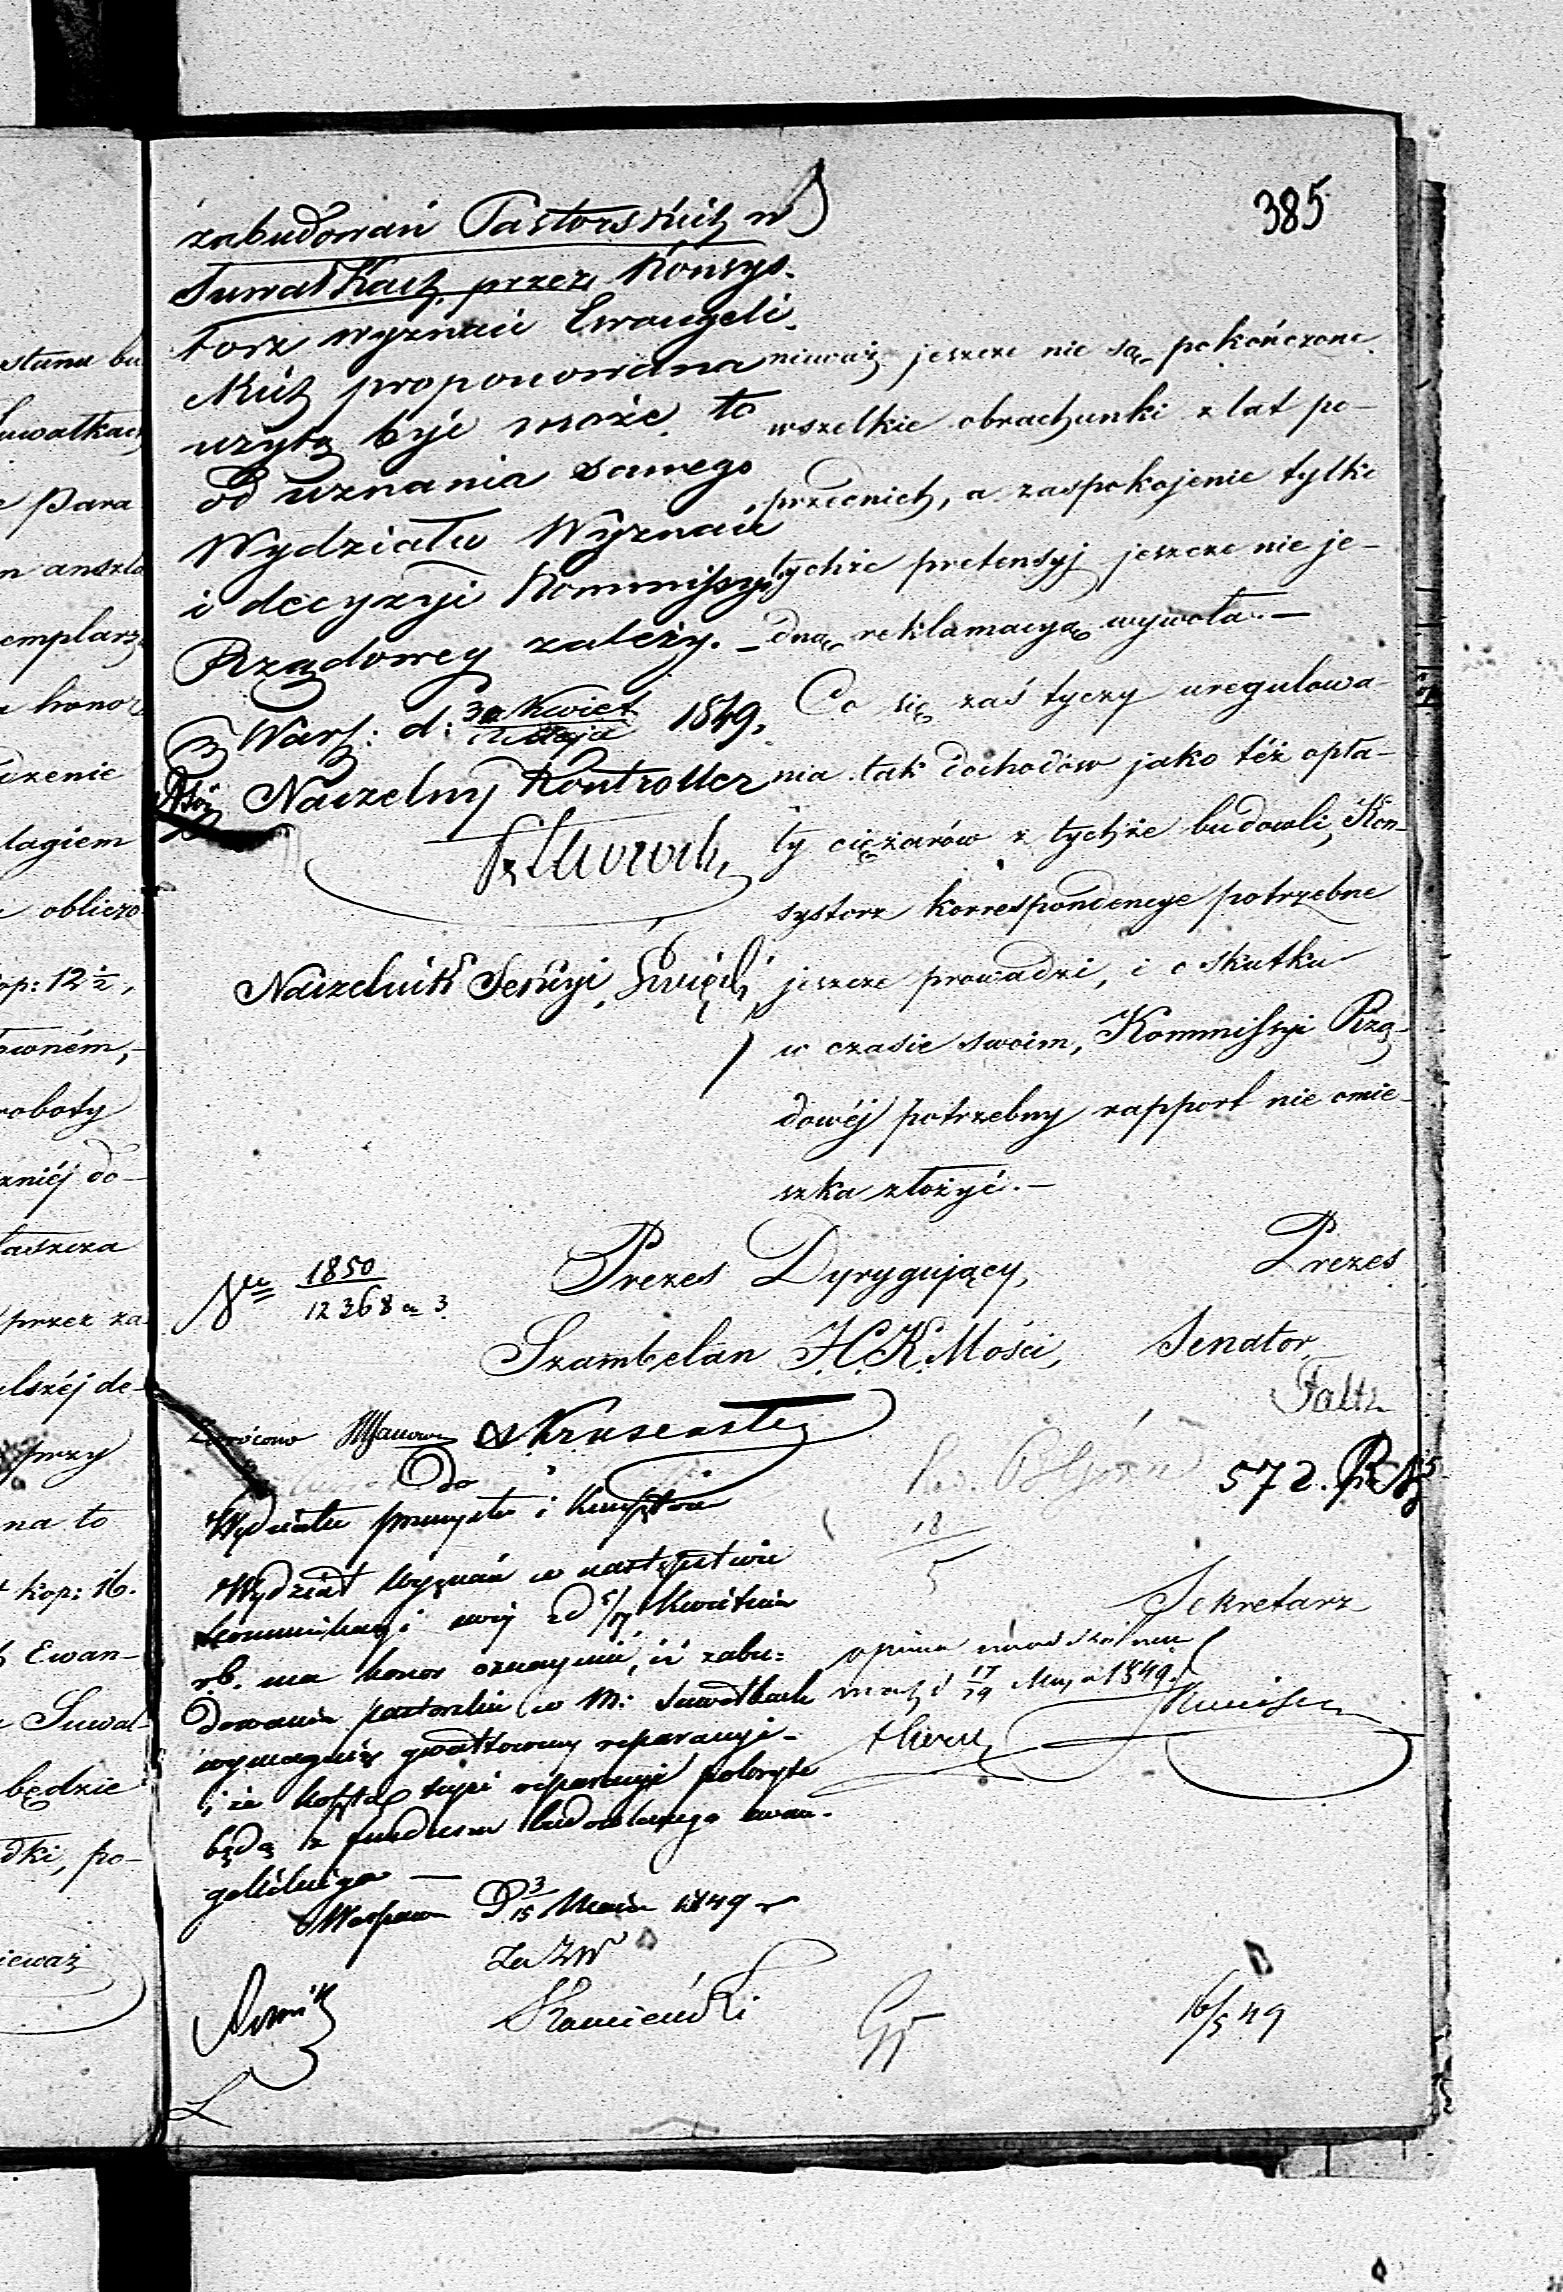 385
zabudowań Pastorskich w
Suwałkach, przez Konsys-
torz wyznań Ewangeli-
ckich proponowana
użytą być może, to
od uznania samego
Wydziału Wyznań
i decyzyi Kommissyi
Rządowey zależy. –
Warsz: d: 30 Kwiet / 12 Maja 1849.
Naczelny Kontroller
Naczelnik Sekcyi
nieważ jeszcze nie są pokończone
wszelkie obrachunki z lat po-
przednich, a zaspokojenie tylko
tychże pretensyj jeszcze nie je-
dną reklamacyą wywoła. –
Co się zaś tyczy uregulowa-
nia tak dochodów jako też opła-
ty ciężarów z tychże budowli, Kon-
systorz korrespondencye potrzebne
jeszcze prowadzi, i o skutku
w czasie swoim, Kommissyi Rzą-
dowéj potrzebny rapport nie omie-
szka złożyć. –
Prezes Dyrygujący,
Szambelan J.C.K. Mości,
Prezes
Senator
Faltz
No 1850 / 12368 a 3.
Zwrócono
Do
Wydziału przemysłu i Kunsztów
Wydział Wyznań w następstwie
kommunikacyi swej z d 5/17 Kwietnia
r.b. ma honor oznaymić, iż zabu-
dowania pastorskie w M: Suwałkach
wymagają gwałtowney reparacyi
i że koszta tejże reparacyi pokryte
będą z funduszu budowlanego ewan-
gelickiego —
Warszawa D 3/15 Maja 1849 r
Za
Kamieński
572.
18/5
Sekretarz
17/29 Maja 1849.
16/5 49
stanu bu
Suwałkach
Para
anszla
emplarz
honor
dzenie
lagiem
obliczo
kop: 12½,
owném,-
roboty
zniéj do-
łaszcza
przez za
lszéj de-
przy
na to
kop: 16.
Ewan-
Suwał-
będzie
dki, po-
ieważ